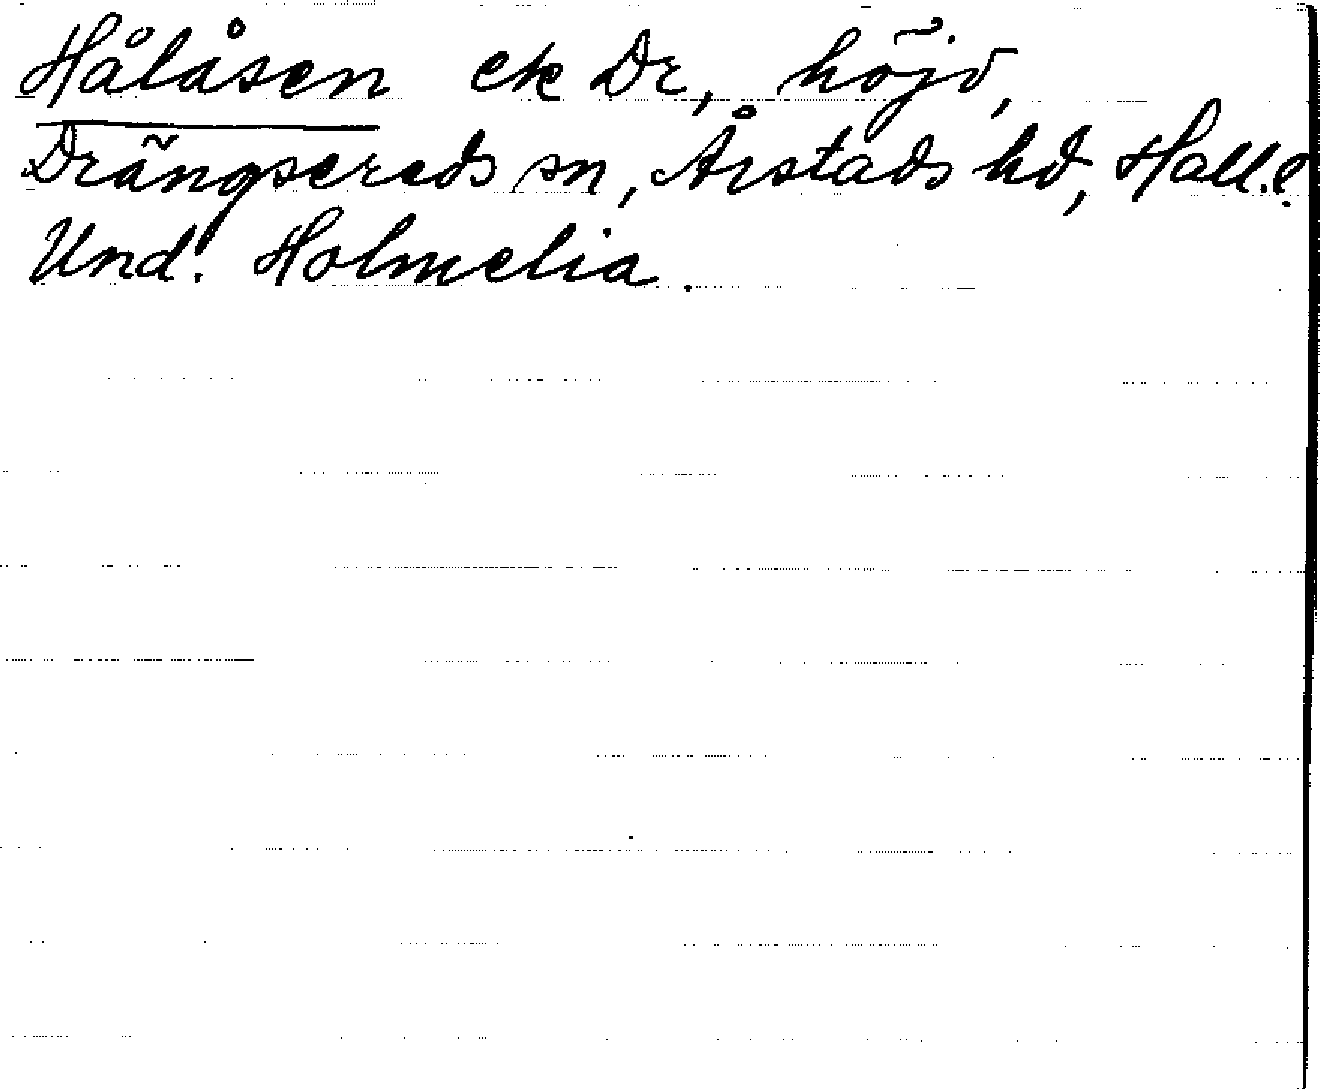 Hålåsen ek Dr, höjd,
Drängsereds sn, Årstads hd, Hall.l.
Und. Holmelia.